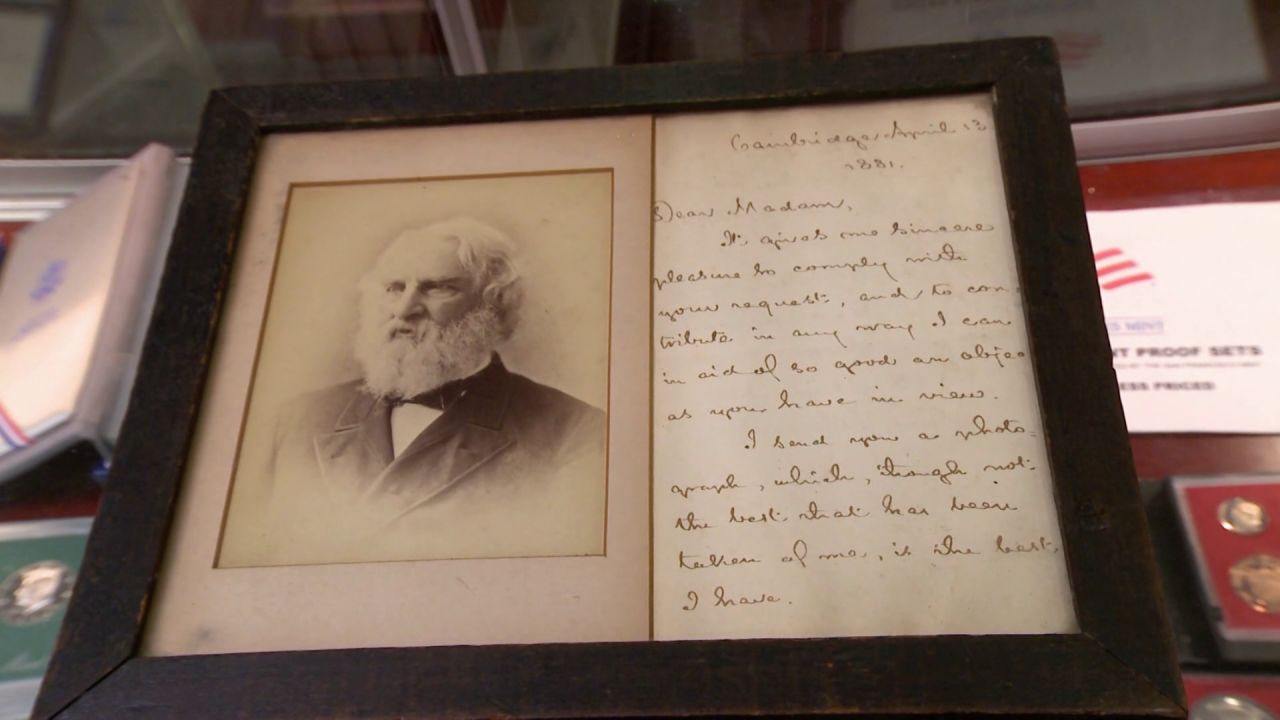 Cambridge, April 13
1881.
Dear Madam,
It gives me sincere
pleasure to comply with
your request, and to con-
tribute in any way I can
in aid of so good an objec
as you have in view.
I send you a photo-
graph, which, though not
the best that has been
taken of me, is the best
I have.
S MINT
NT PROOF SETS
ESS PRICED